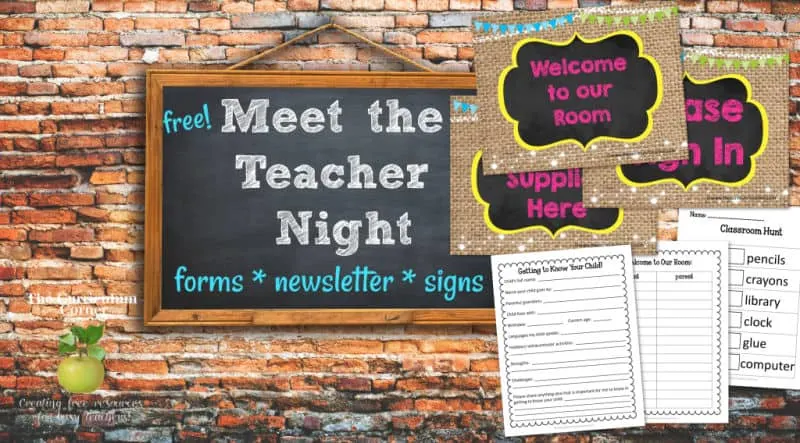 free! Meet the
Teacher
Night
forms * newsletter * signs
The Curriculum
Corner
Creating free resources
for busy teachers!
Welcome
to our
Room
ase
n In
Suppli
Here
Getting to Know Your Child!
Child's full name:
Name your child goes by:
Parents/guardians:
Child lives with:
Birthdate:
Current age:
Languages my child speaks:
Hobbies/extracurricular activities:
Strengths:
Challenges:
Please share anything else that is important for me to know in
getting to know your child.
elcome to Our Room:
parent
Name:
Classroom Hunt
pencils
crayons
library
clock
glue
computer